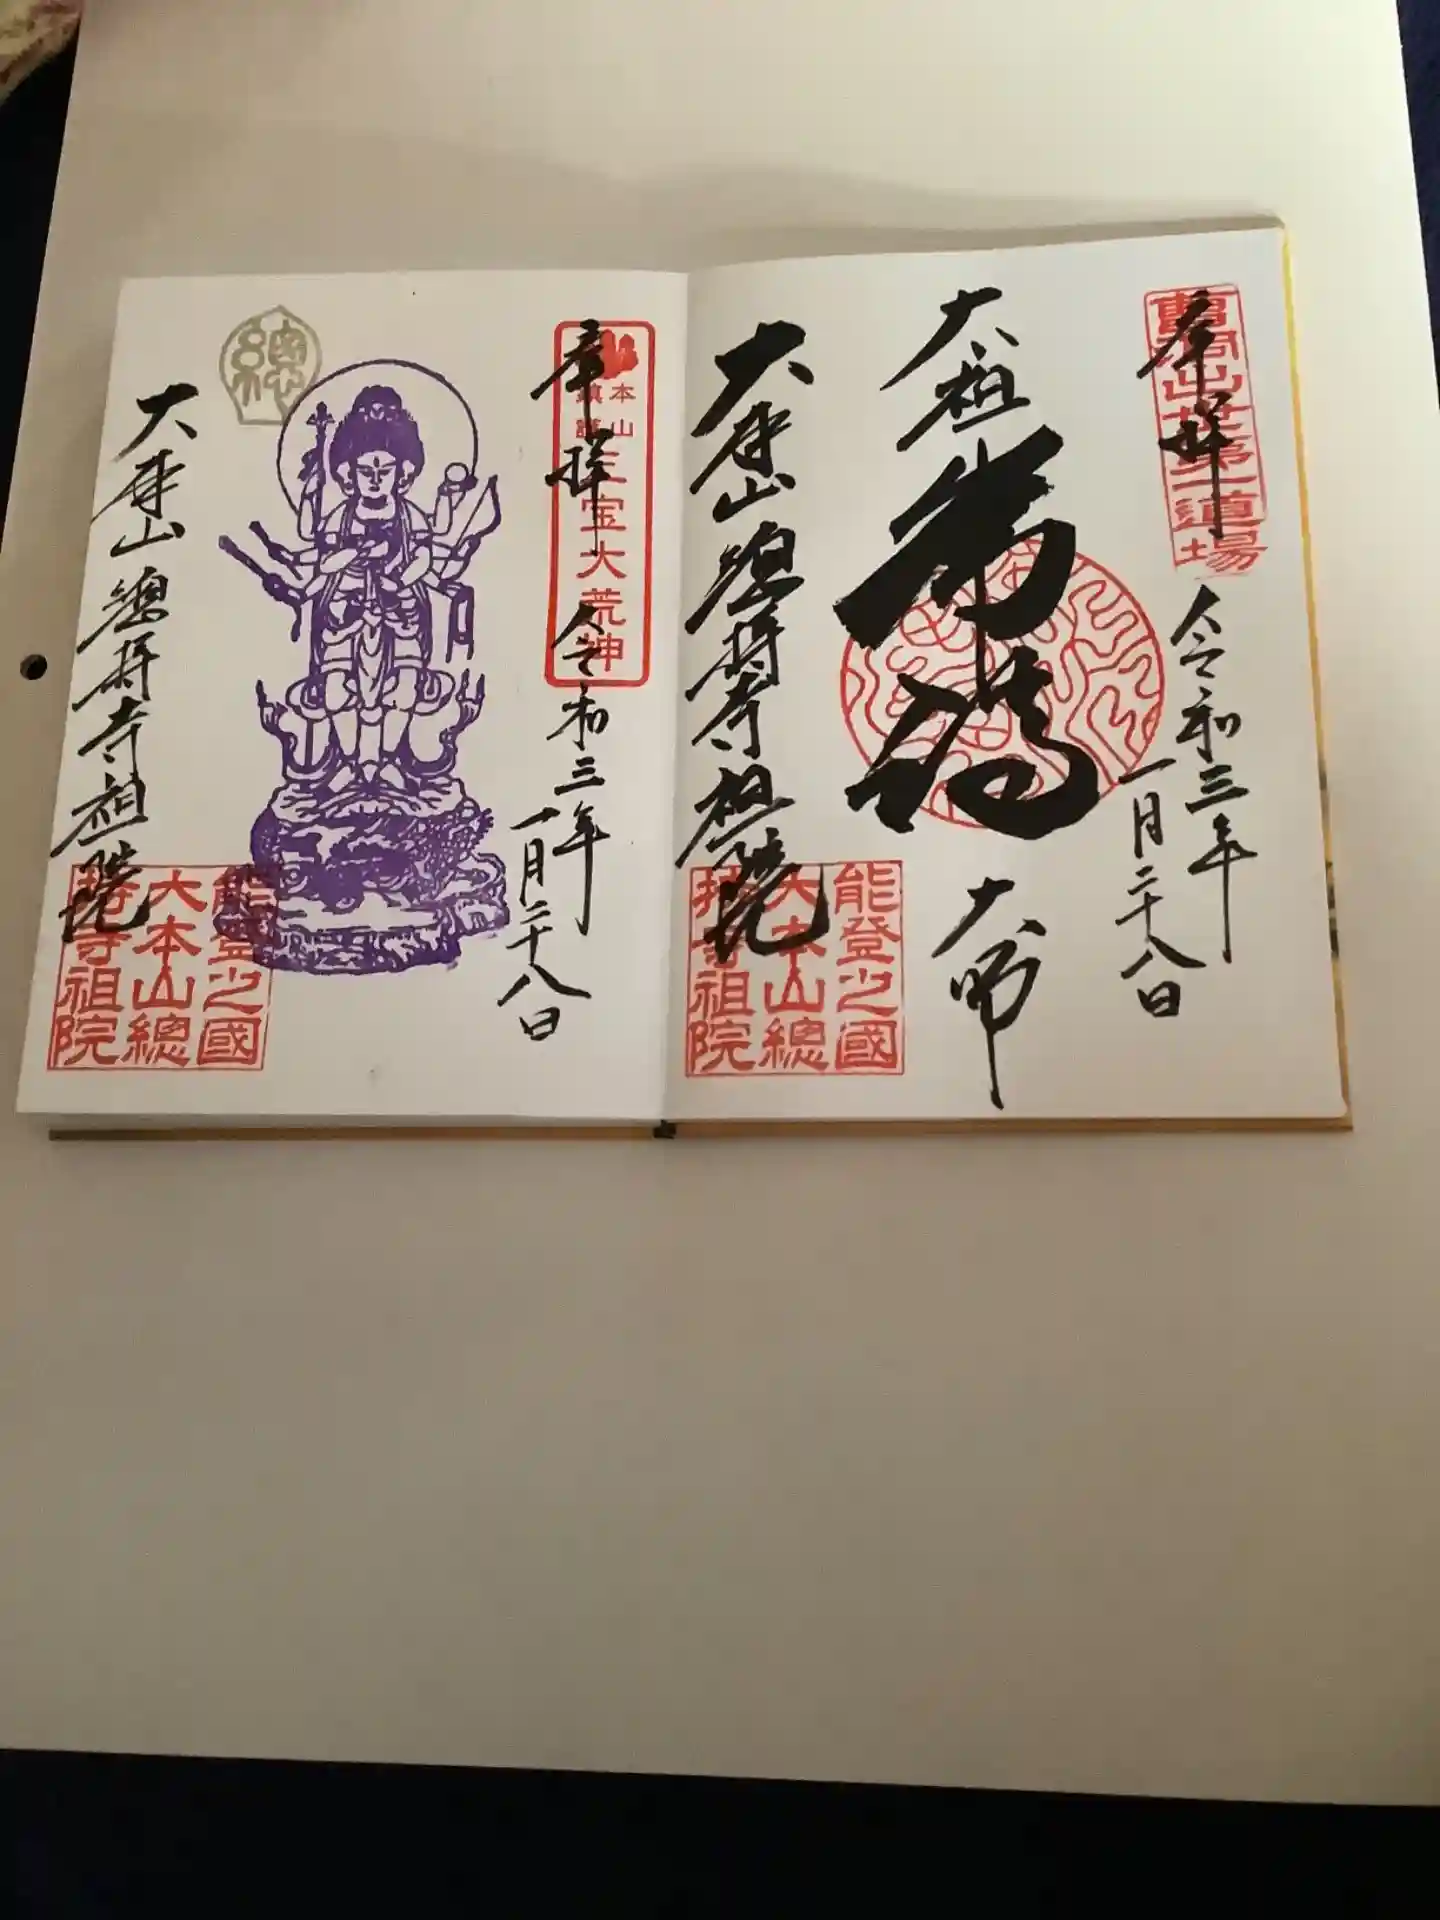 奉拝
曹洞出世第一道場
令和三年
一月二十八日
大祖
常済
大師
大本山總持寺祖院
能登之國
大本山總
持寺祖院
奉拝
本山
鎮護
三宝大荒神
令和三年
一月二十八日
總
大本山總持寺祖院
能登之國
大本山總
持寺祖院